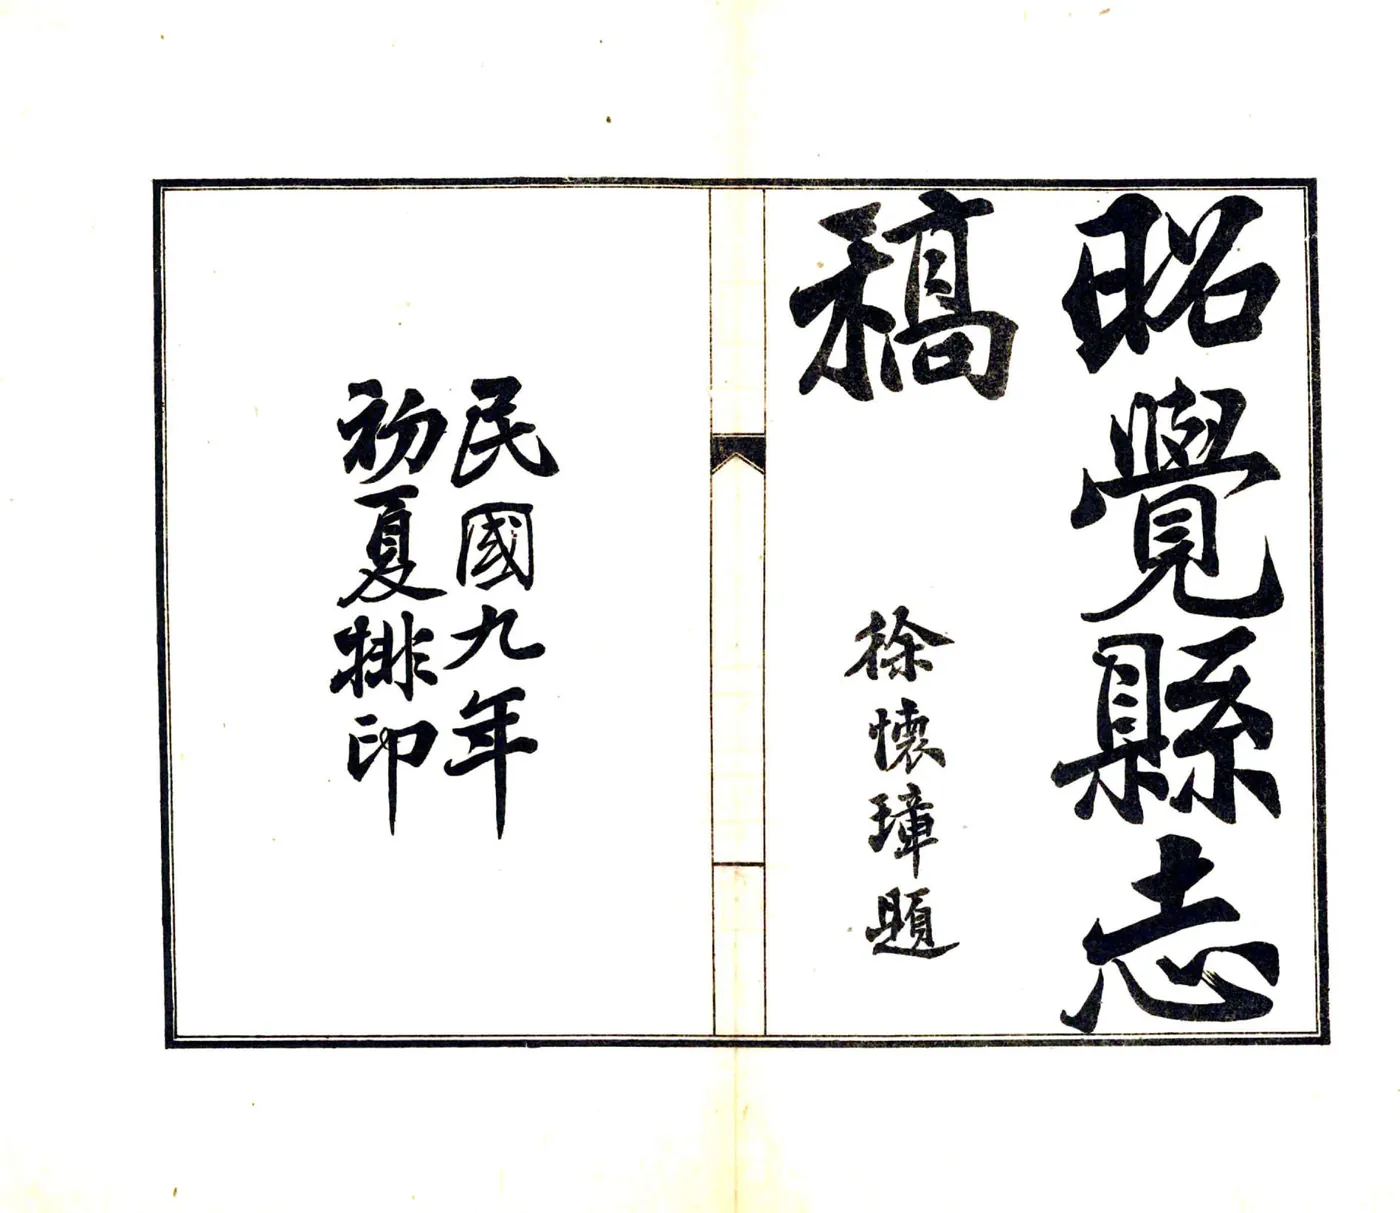 昭覺縣志
稿
徐懷璋題
民國九年
初夏排印